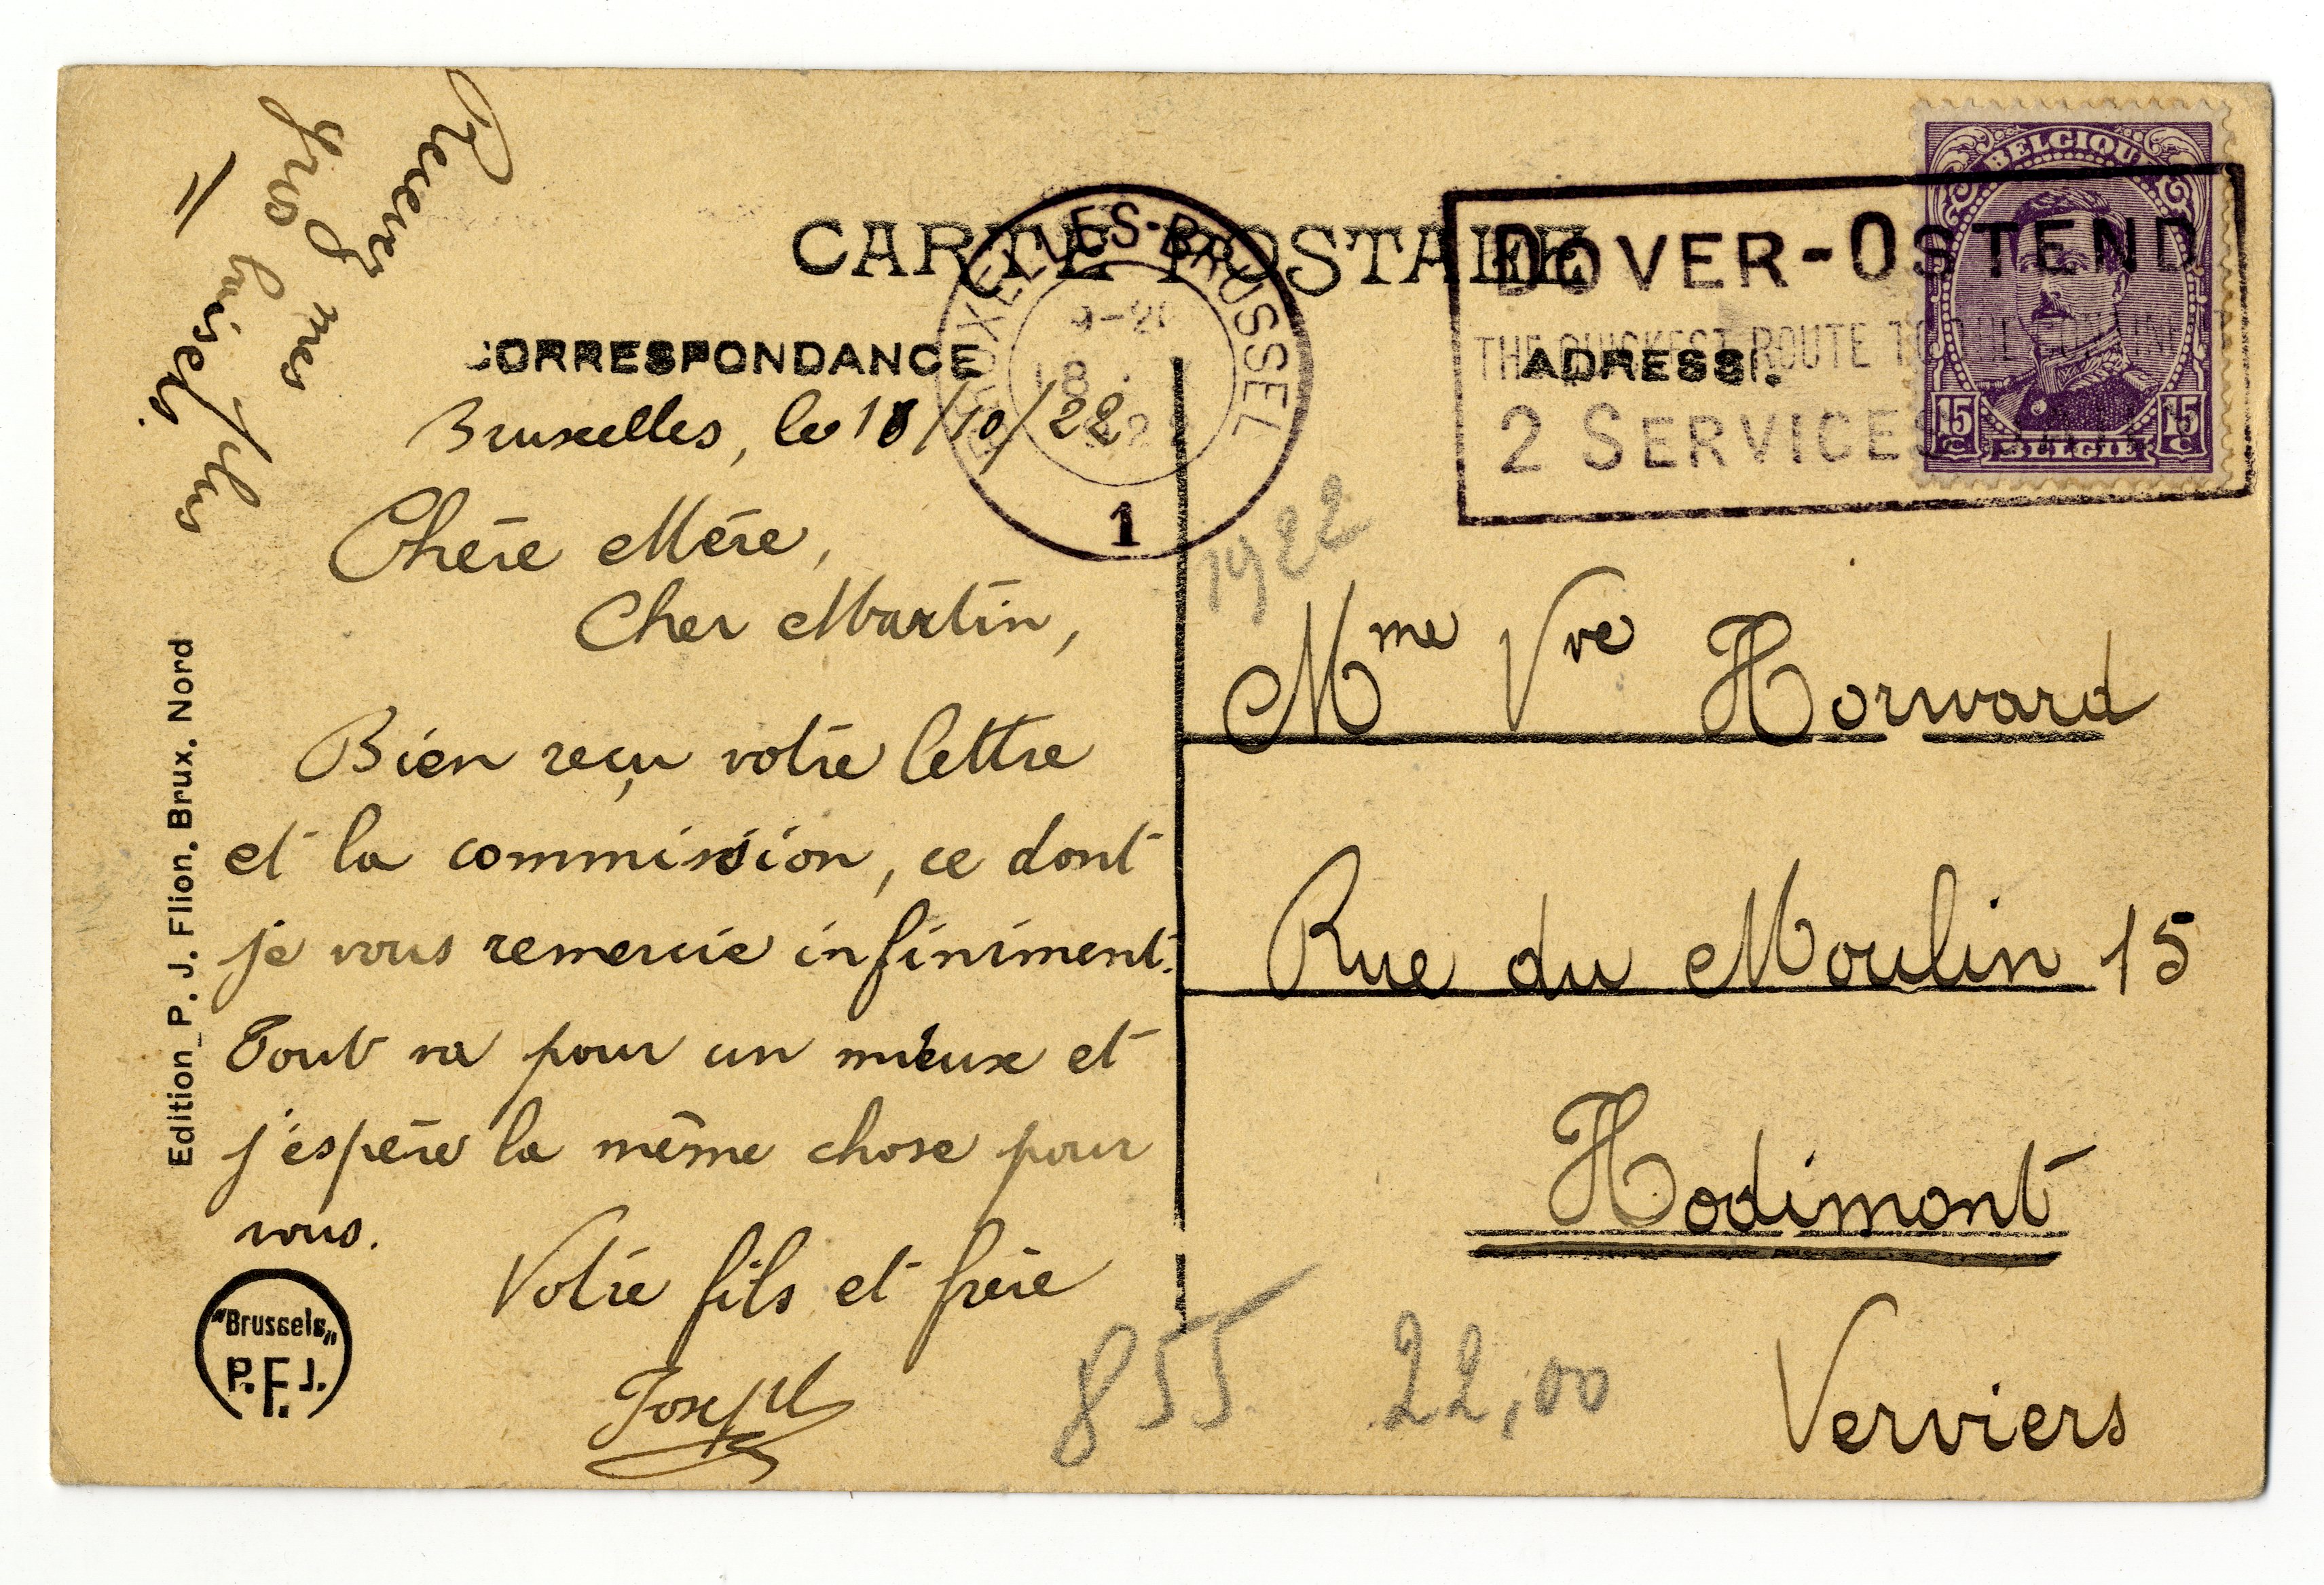 CARTE POSTALE
CORRESPONDANCE
ADRESSE.
BRUXELLES-BRUSSEL
9-20
18
22
1
DOVER-OSTEND
THE QUICKEST ROUTE TO
2 SERVICES
BELGIQUE
15 C
15 C
BELGIË
Recevez mes plus
gros baisers.
Bruxelles, le 18/10/22
Chère Mère,
Cher Martin,
Bien reçu votre lettre
et la commission, ce dont
je vous remercie infiniment.
Tout va pour un mieux et
j'espère la même chose pour
vous.
Votre fils et frère
Joseph
1922
Mme Vve Horward
Rue du Moulin 15
Hodimont
Verviers
855 22,00
Edition P. J. Flion. Brux. Nord
"Brussels"
P.F.J.
F.